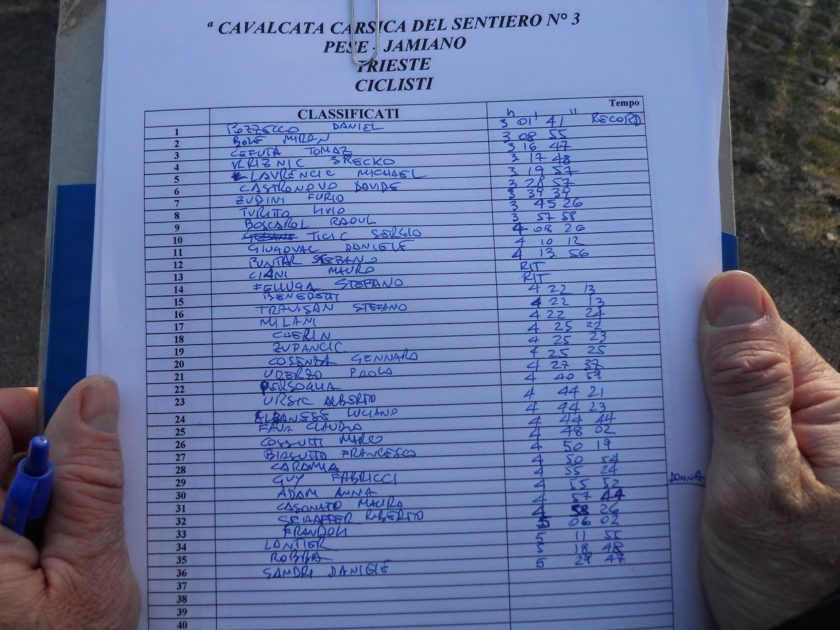 ª CAVALCATA CARSICA DEL SENTIERO N° 3
PESE - JAMIANO
TRIESTE
CICLISTI
CLASSIFICATI h ' " Tempo
1 POZZECCO DANIEL 3 01 41 RECORD
2 BOLE MIRAN 3 08 55
3 CEFUTA TOMAZ 3 16 47
4 KRIZNIC SRECKO 3 17 48
5 LAVRENCIC MICHAEL 3 19 57
6 CASTRONOVO DAVIDE 3 28 57
7 ZUDINI FURIO 3 39 39
8 LIVIO 3 45 26
9 BOSCAROL RAOUL 3 57 58
10 TICIC SERGIO 4 08 26
11 GIUGOVAC DANIELE 4 10 12
12 PUNTAR STEFANO 4 13 56
13 CIANI MAURO RIT
14 FELLUGA STEFANO RIT
15 BENEDETTI 4 22 13
16 TRAVISAN STEFANO 4 22 13
17 MILANI 4 22 24
18 CHERIN 4 25 22
19 ZUPANCIC 4 25 23
20 COSENZA GENNARO 4 25 25
21 UDERZO PAOLO 4 27 38
22 PERSOGLIA 4 40 59
23 URSIC ALBERTO 4 44 21
24 ALBANESE LUCIANO 4 44 23
25 FAVA CLAUDIO 4 44 44
26 COSSUTTI MARCO 4 48 02
27 BIASUTTO FRANCESCO 4 50 19
28 CARAMIA 4 50 54
29 GUY FABRICCI 4 55 24
30 ADAM ANNA 4 55 52 DONNA
31 CASONATO MAURO 4 57 44
32 ROBERTO 4 58 26
33 FRANDOLI 5 06 02
34 LANTIER 5 11 55
35 ROBBA 5 18 48
36 SANDRI DANIELE 5 27 47
37
38
39
40